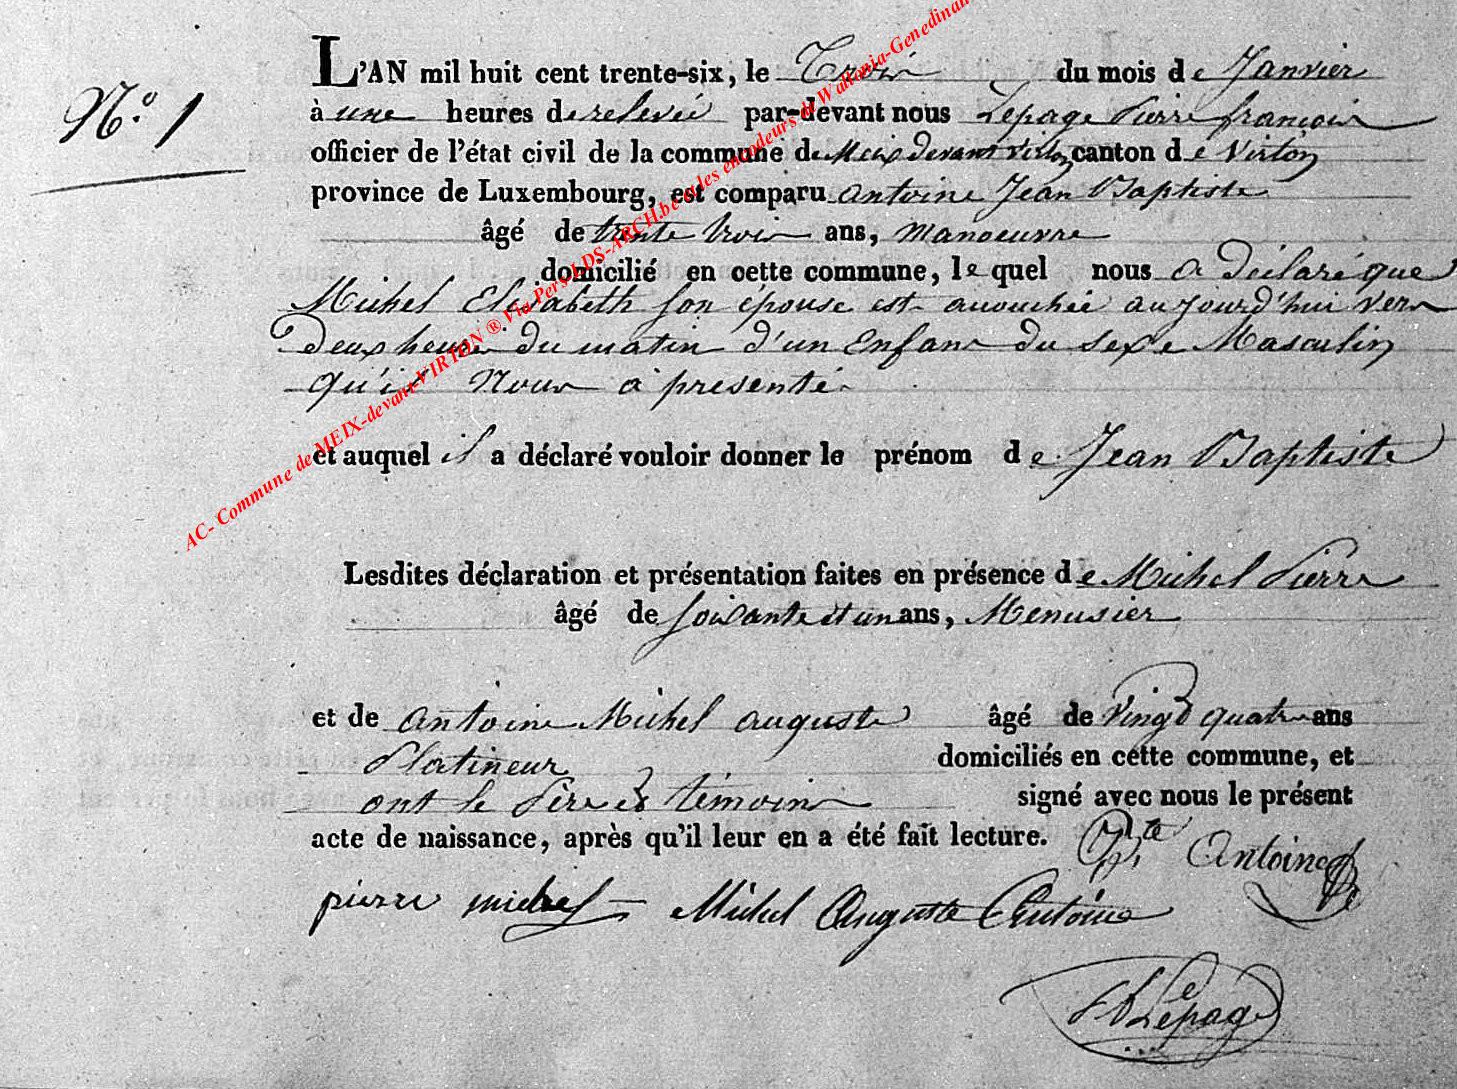 N.° 1
L'AN mil huit cent trente-six, le Trois du mois de Janvier
à une heures de relevée par-devant nous Lepage Pierre françois
officier de l'état civil de la commune de Meix devant Virton canton de Virton
province de Luxembourg, est comparu antoine Jean Baptiste
âgé de trente trois ans, manoeuvre
domicilié en cette commune, lequel nous a déclaré que
Michel Elisabeth son épouse est accouchée aujourd'hui vers
deux heures du matin d'un Enfant du sexe Masculin
qu'il Nous a presenté
et auquel il a déclaré vouloir donner le prénom de Jean Baptiste
Lesdites déclaration et présentation faites en présence de Michel Pierre
âgé de soixante et un ans, Menusier
et de antoine Michel auguste âgé de vingt quatre ans
Platineur domiciliés en cette commune, et
ont le Père et témoins signé avec nous le présent
acte de naissance, après qu'il leur en a été fait lecture.
Bte Antoine
pierre michel Michel Auguste Antoine
Lepage
AC- Commune de MEIX-devant-VIRTON ® Via Pers LDS-ARCH.be et les encodeurs de Wallonia-Genedinant